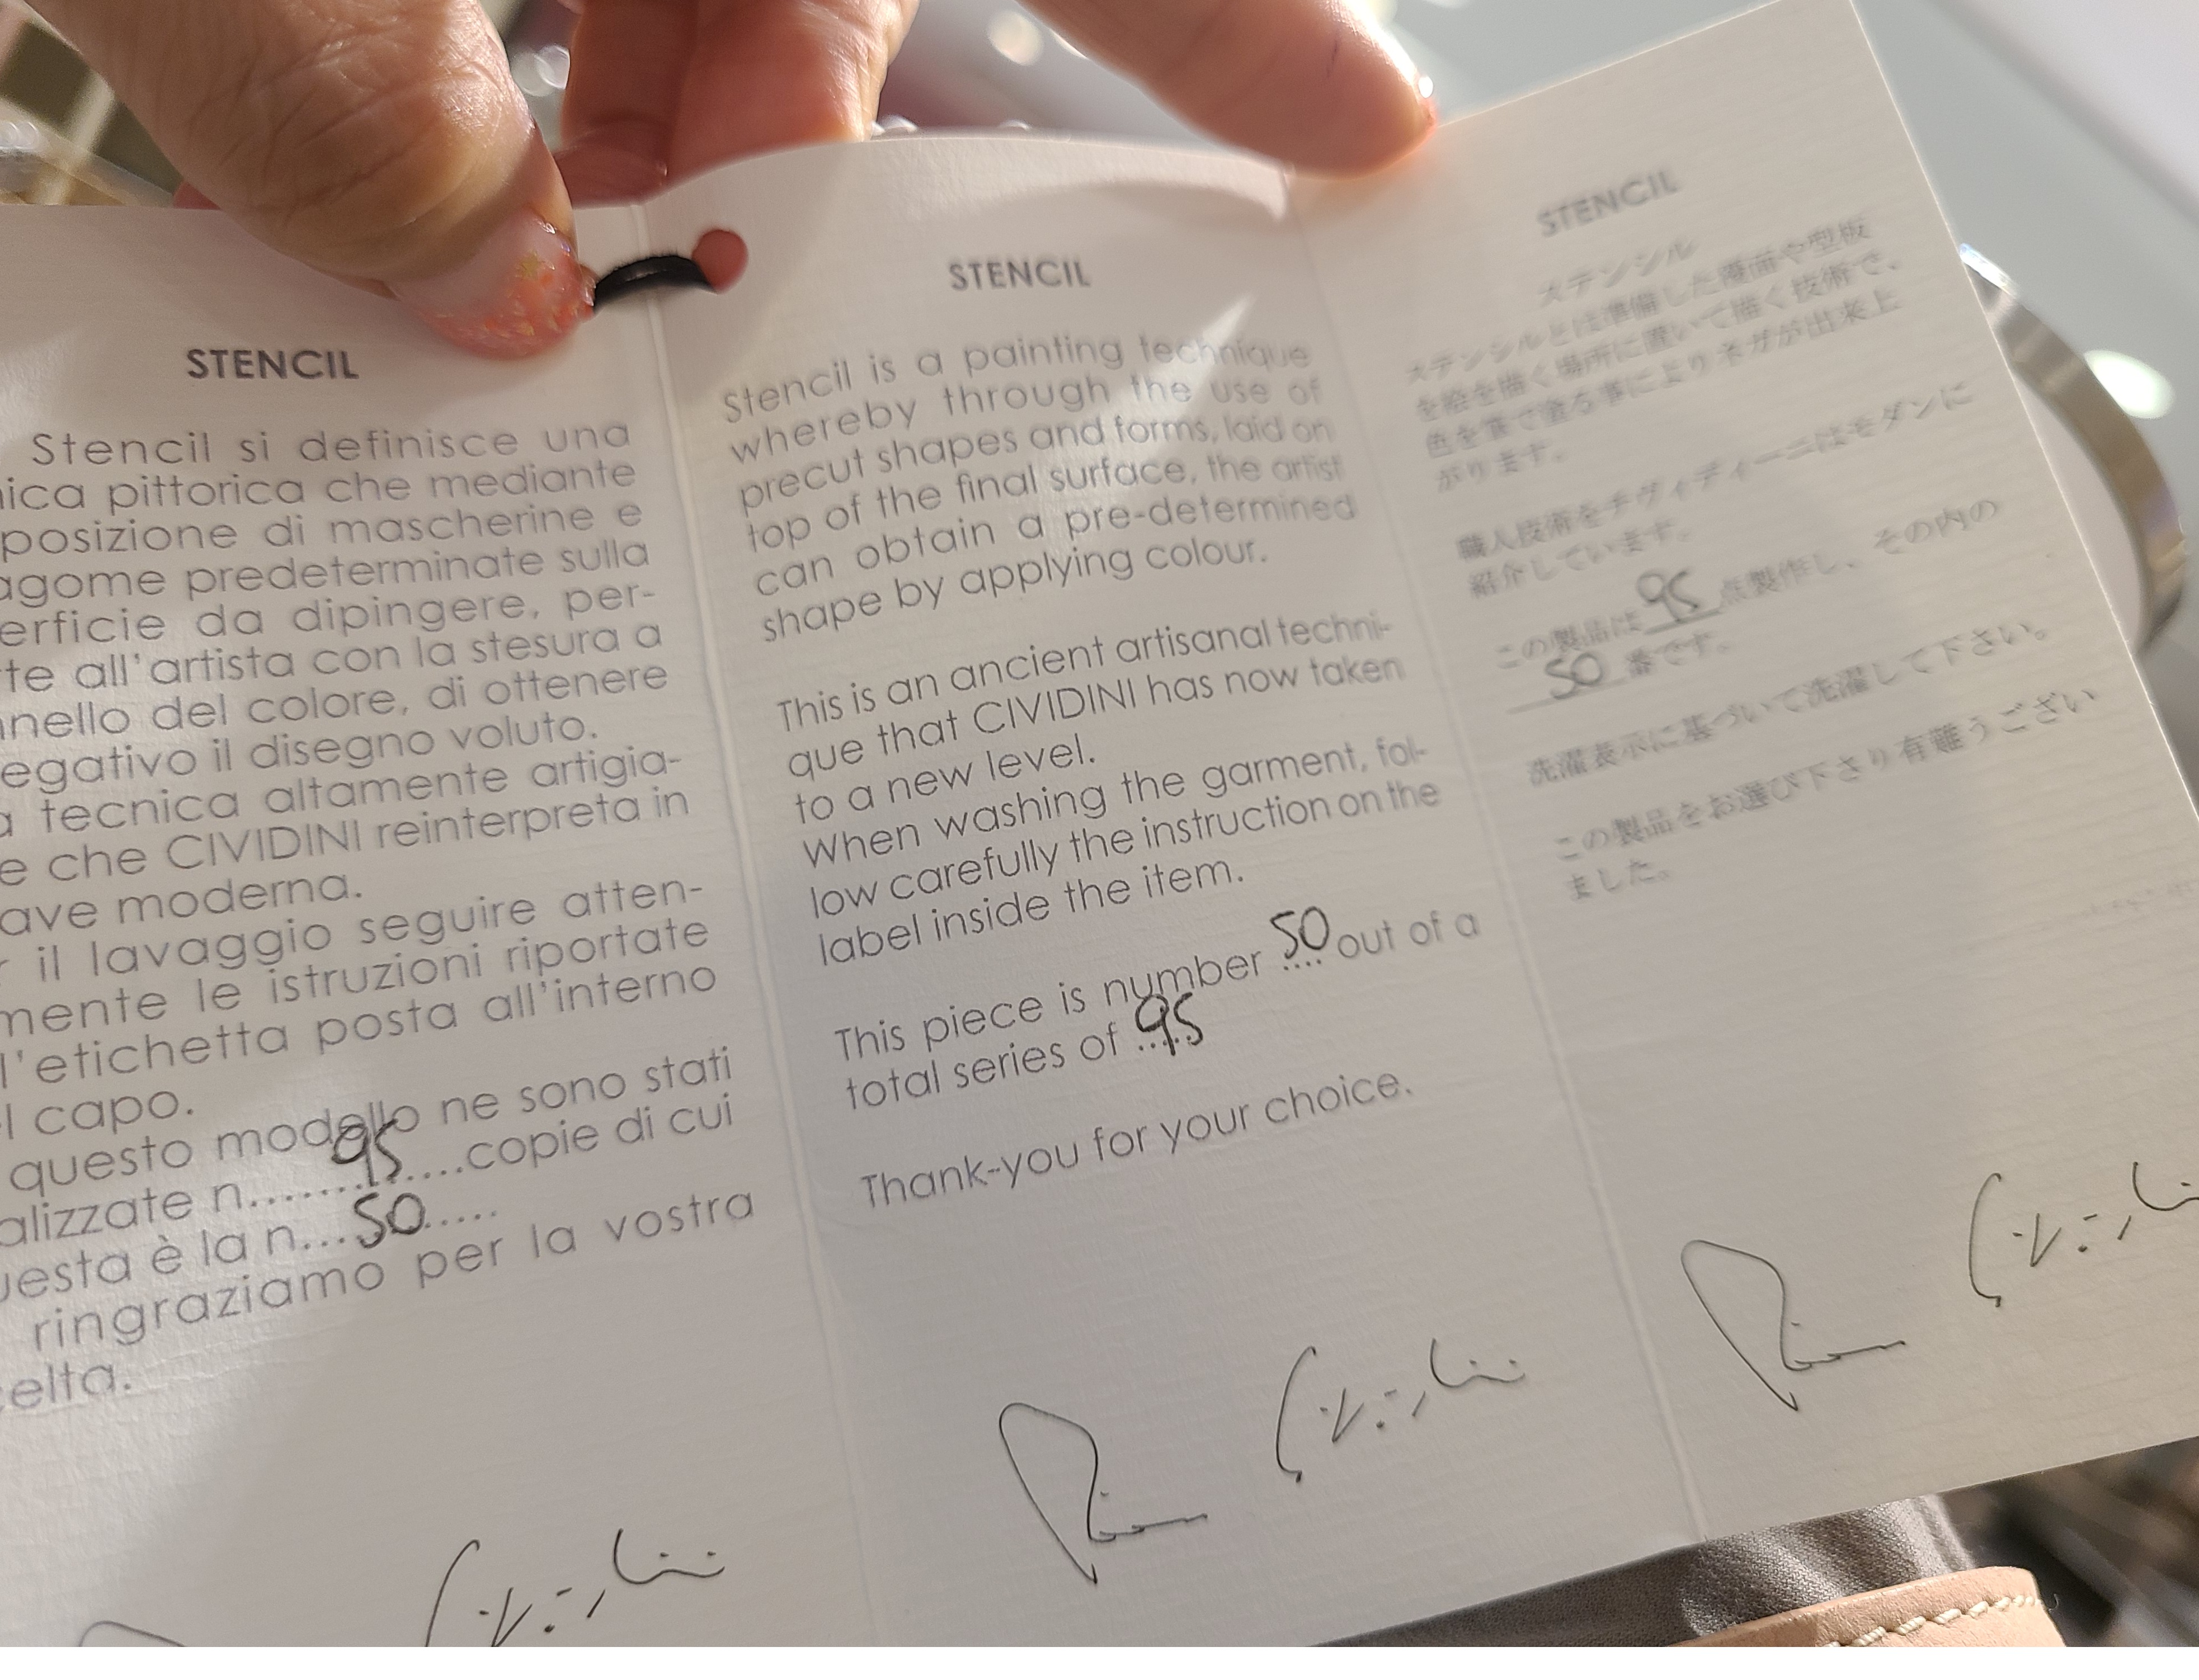 STENCIL
Stencil si definisce una
pittorica che mediante
posizione di mascherine e
predeterminate sulla
da dipingere, per-
all'artista con la stesura a
del colore, di ottenere
il disegno voluto.
tecnica altamente artigia-
che CIVIDINI reinterpreta in
moderna.
il lavaggio seguire atten-
mente le istruzioni riportate
l'etichetta posta all'interno
capo.
questo modello ne sono stati
n.......95....copie di cui
è la n....50.....
ringraziamo per la vostra
STENCIL
Stencil is a painting technique
whereby through the use of
precut shapes and forms, laid on
top of the final surface, the artist
can obtain a pre-determined
shape by applying colour.
This is an ancient artisanal techni-
que that CIVIDINI has now taken
to a new level.
When washing the garment, fol-
low carefully the instruction on the
label inside the item.
This piece is number 50 out of a
total series of 95
Thank-you for your choice.
STENCIL
ステンシル
ステンシルとは準備した覆面や型板
を絵を描く場所に置いて描く技術で、
色を筆で塗る事によりネガが出来上
がります。
職人技術をチヴィディーニはモダンに
紹介しています。
この製品は 95 点製作し、その内の
50 番です。
洗濯表示に基づいて洗濯して下さい。
この製品をお選び下さり有難うござい
ました。